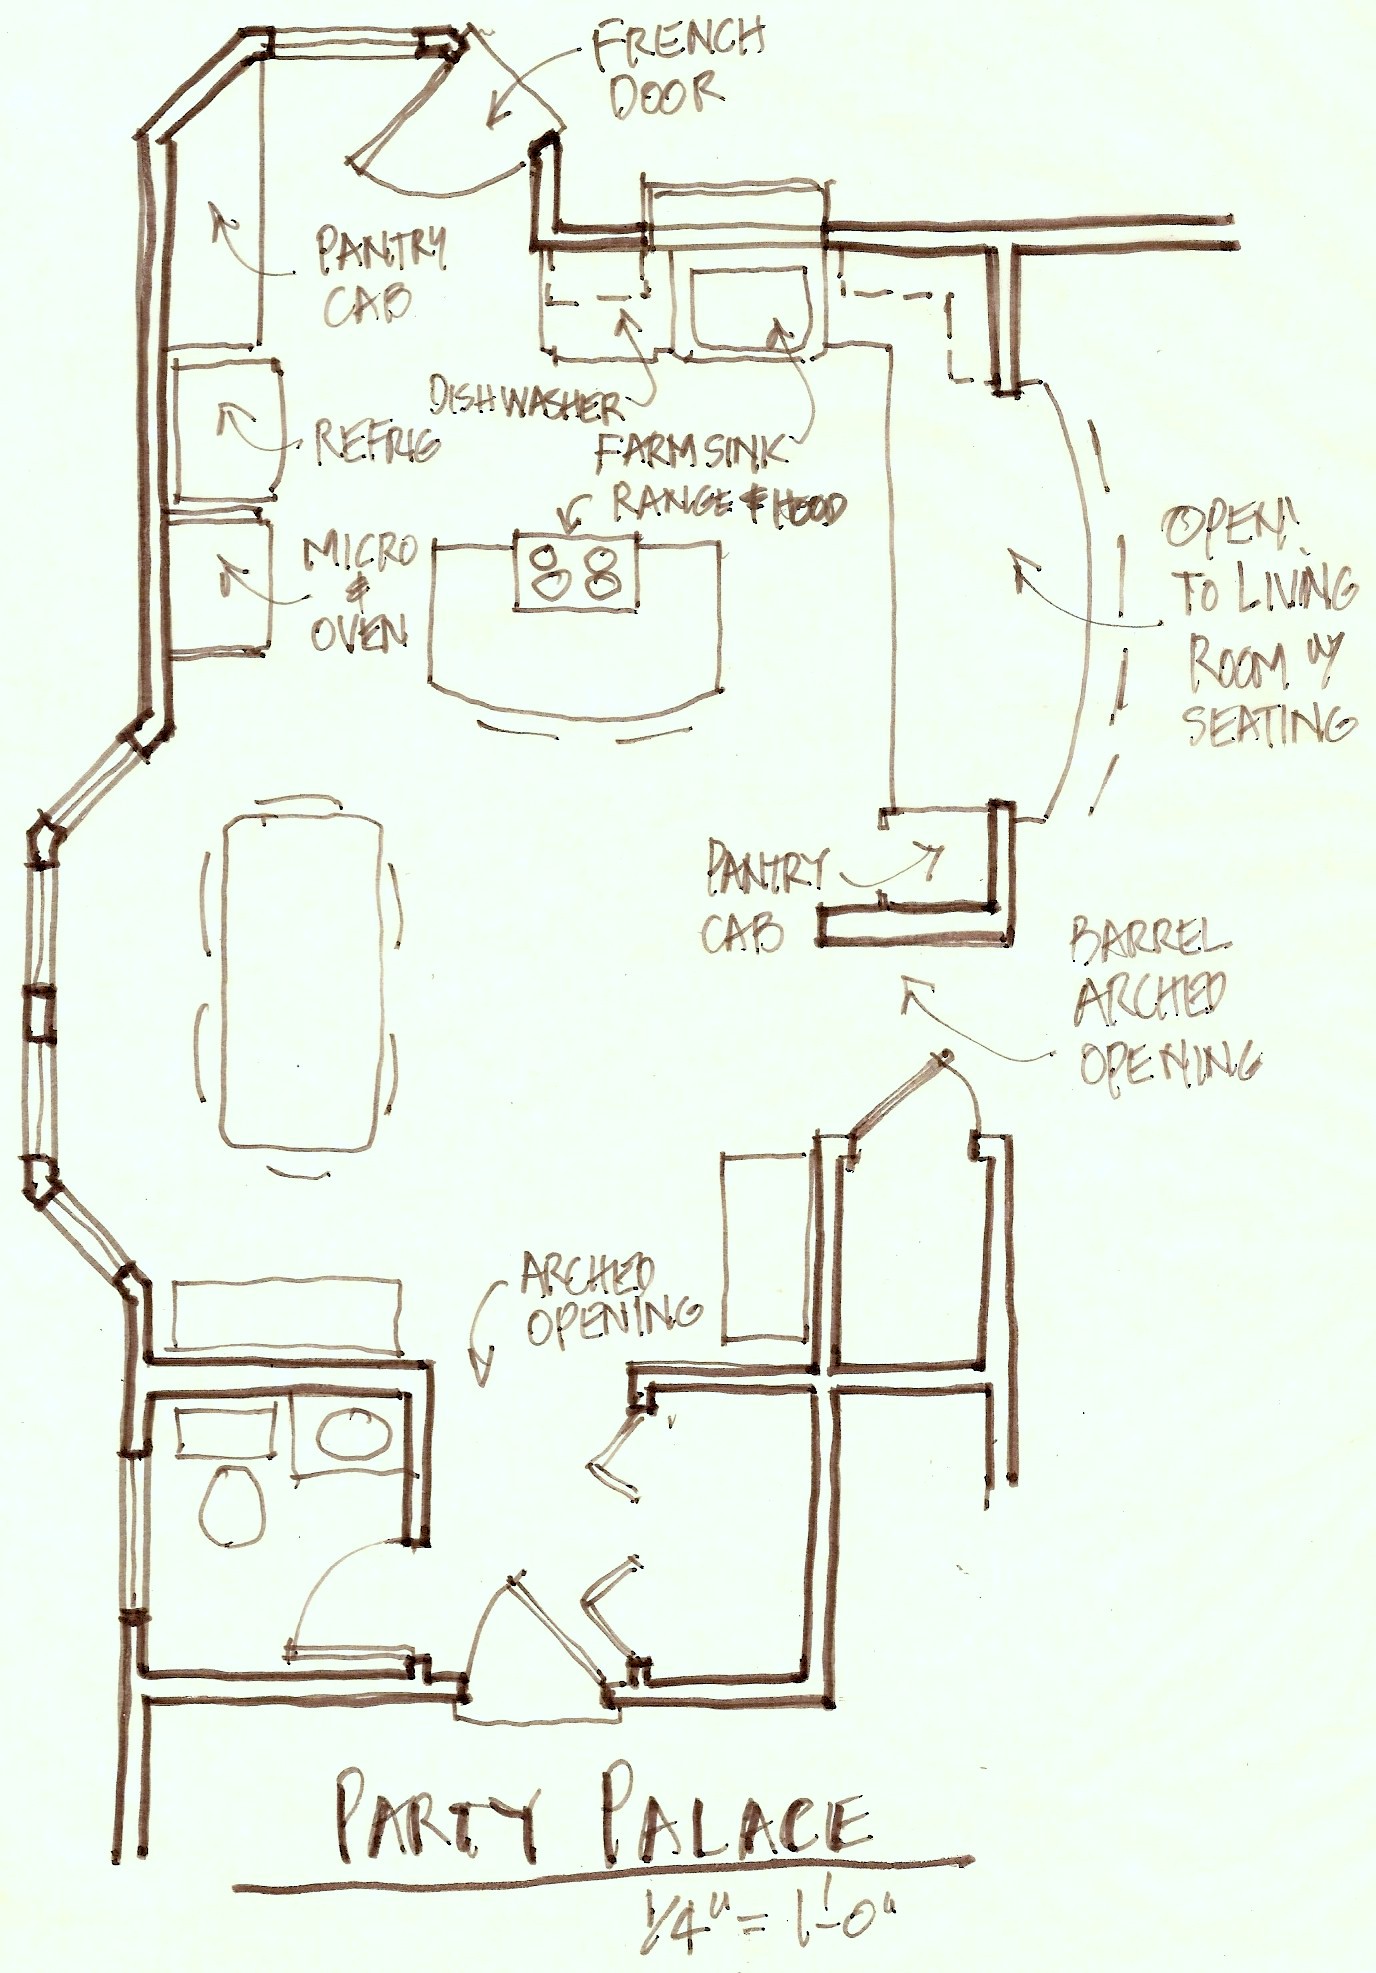 FRENCH
DOOR
PANTRY
CAB
DISHWASHER
REFRIG
FARM SINK
RANGE & HOOD
MICRO
&
OVEN
OPEN!
TO LIVING
ROOM W/
SEATING
PANTRY
CAB
BARREL
ARCHED
OPENING
ARCHED
OPENING
PARTY PALACE
1/4" = 1'-0"